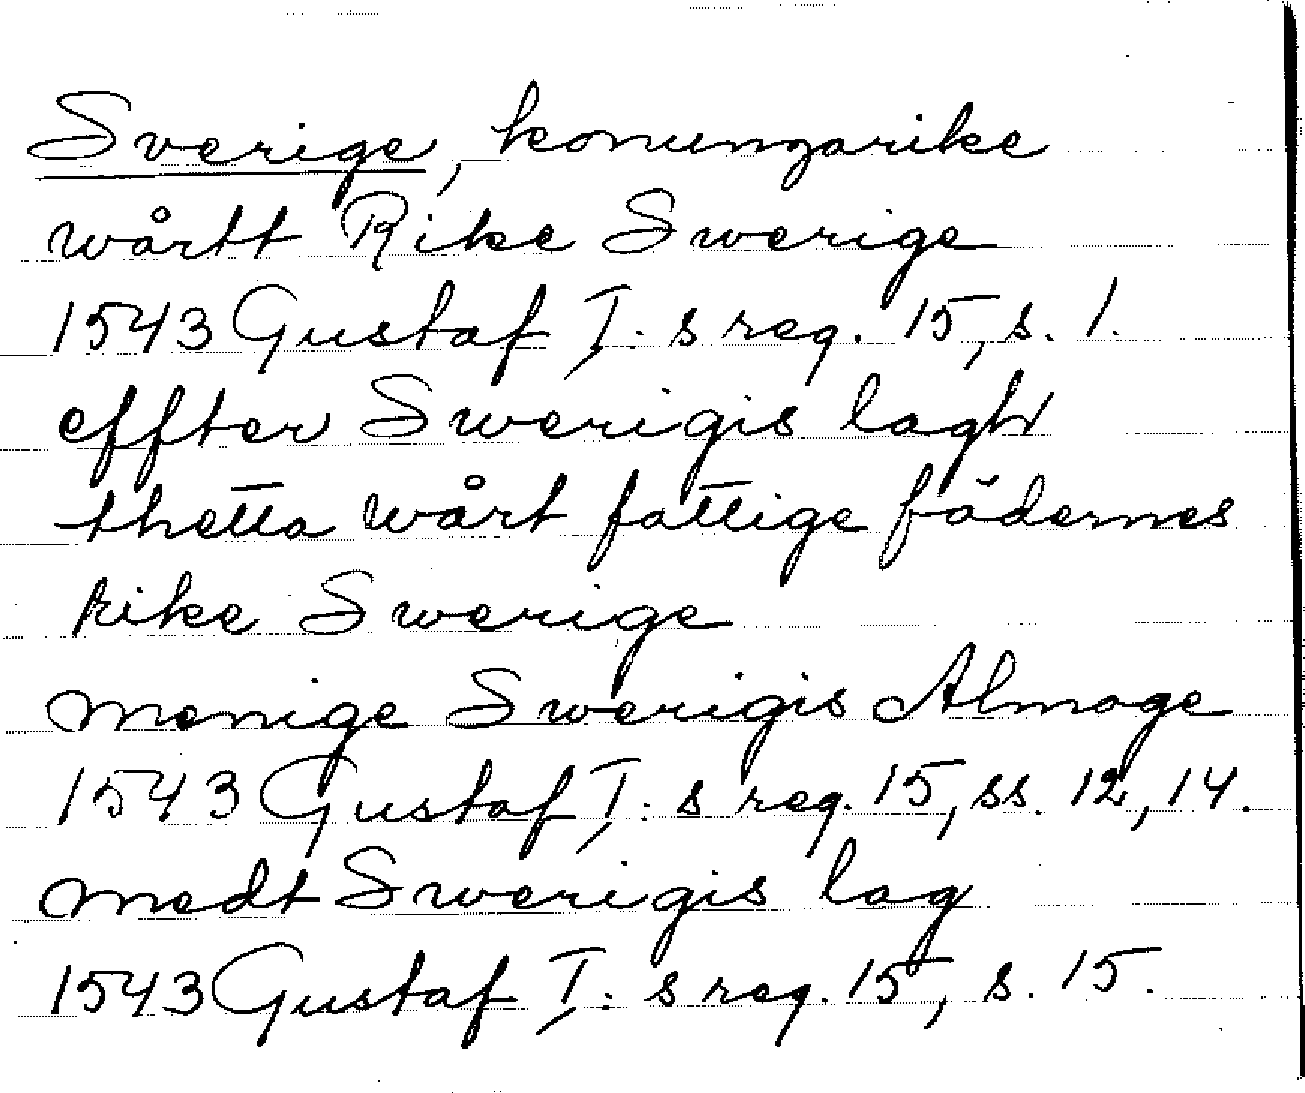 Sverige, konungarike
wårtt Rike Swerige
1543 Gustaf I:s reg. 15, s. 1.
effter Swerigis lagh
thetta wårt fattige fädernes
rike Swerige
menige Swerigis Almoge
1543 Gustaf I:s reg. 15, ss. 12, 14.
medt Swerigis lag
1543 Gustaf I:s reg. 15, s. 15.